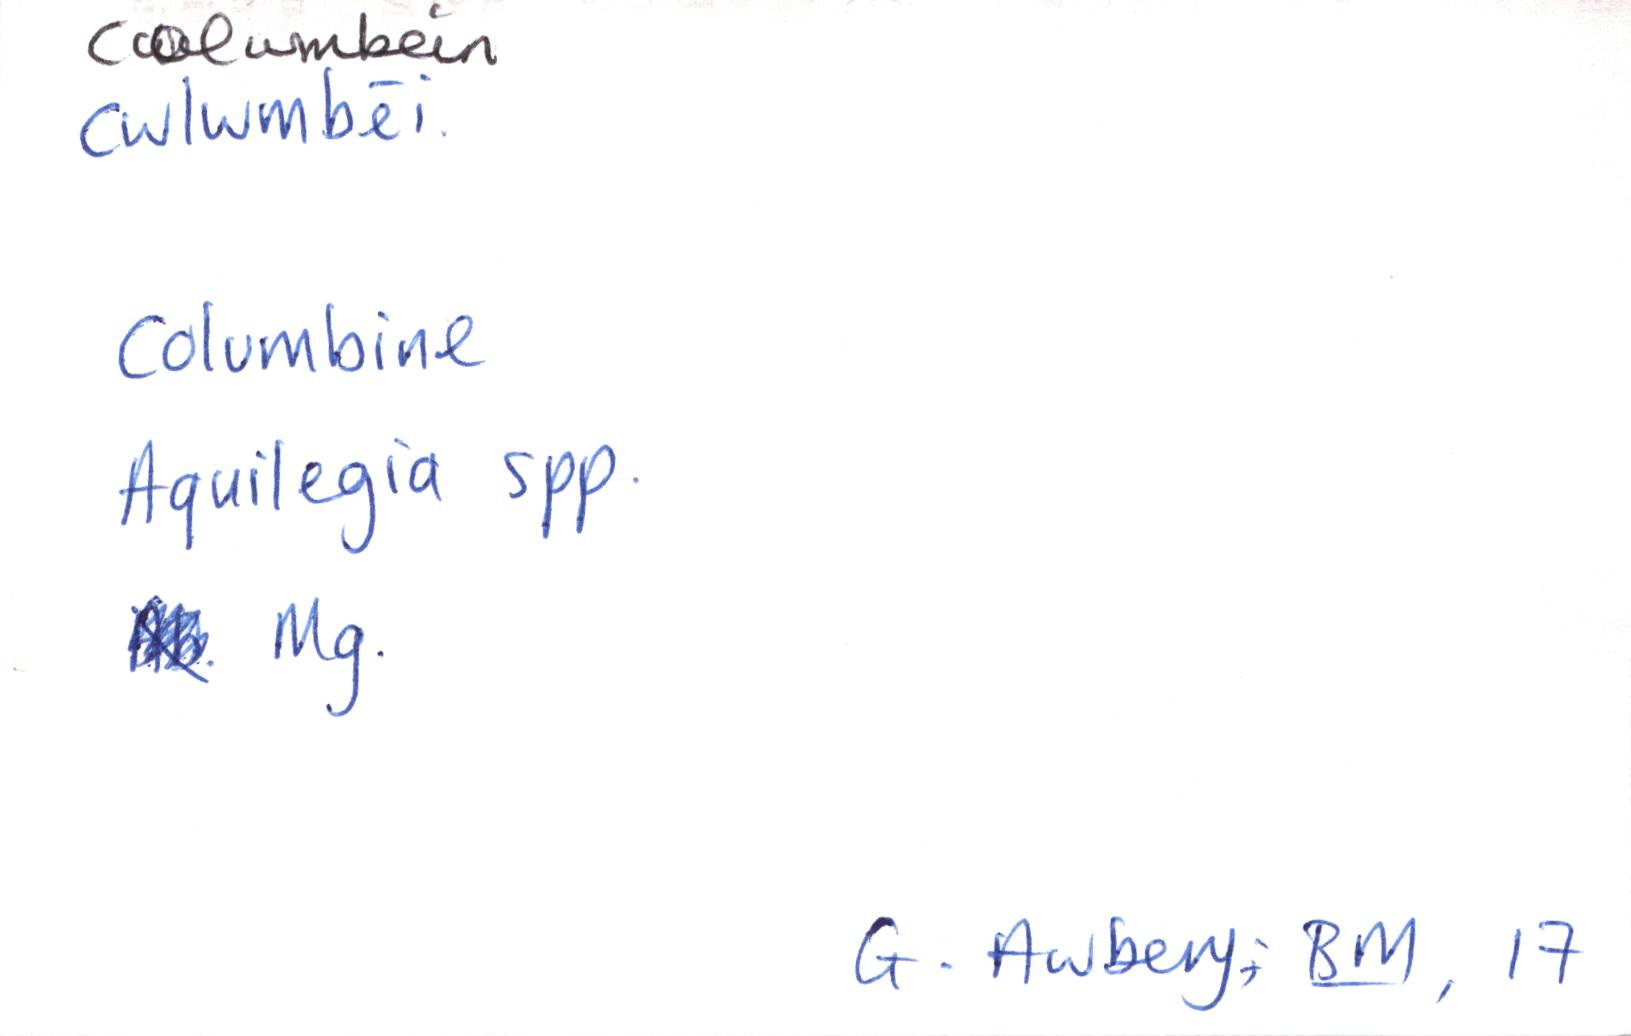 columbéin
cwlwmbēi.
Columbine
Aquilegia spp.
Mg.
G. Awbery; BM, 17